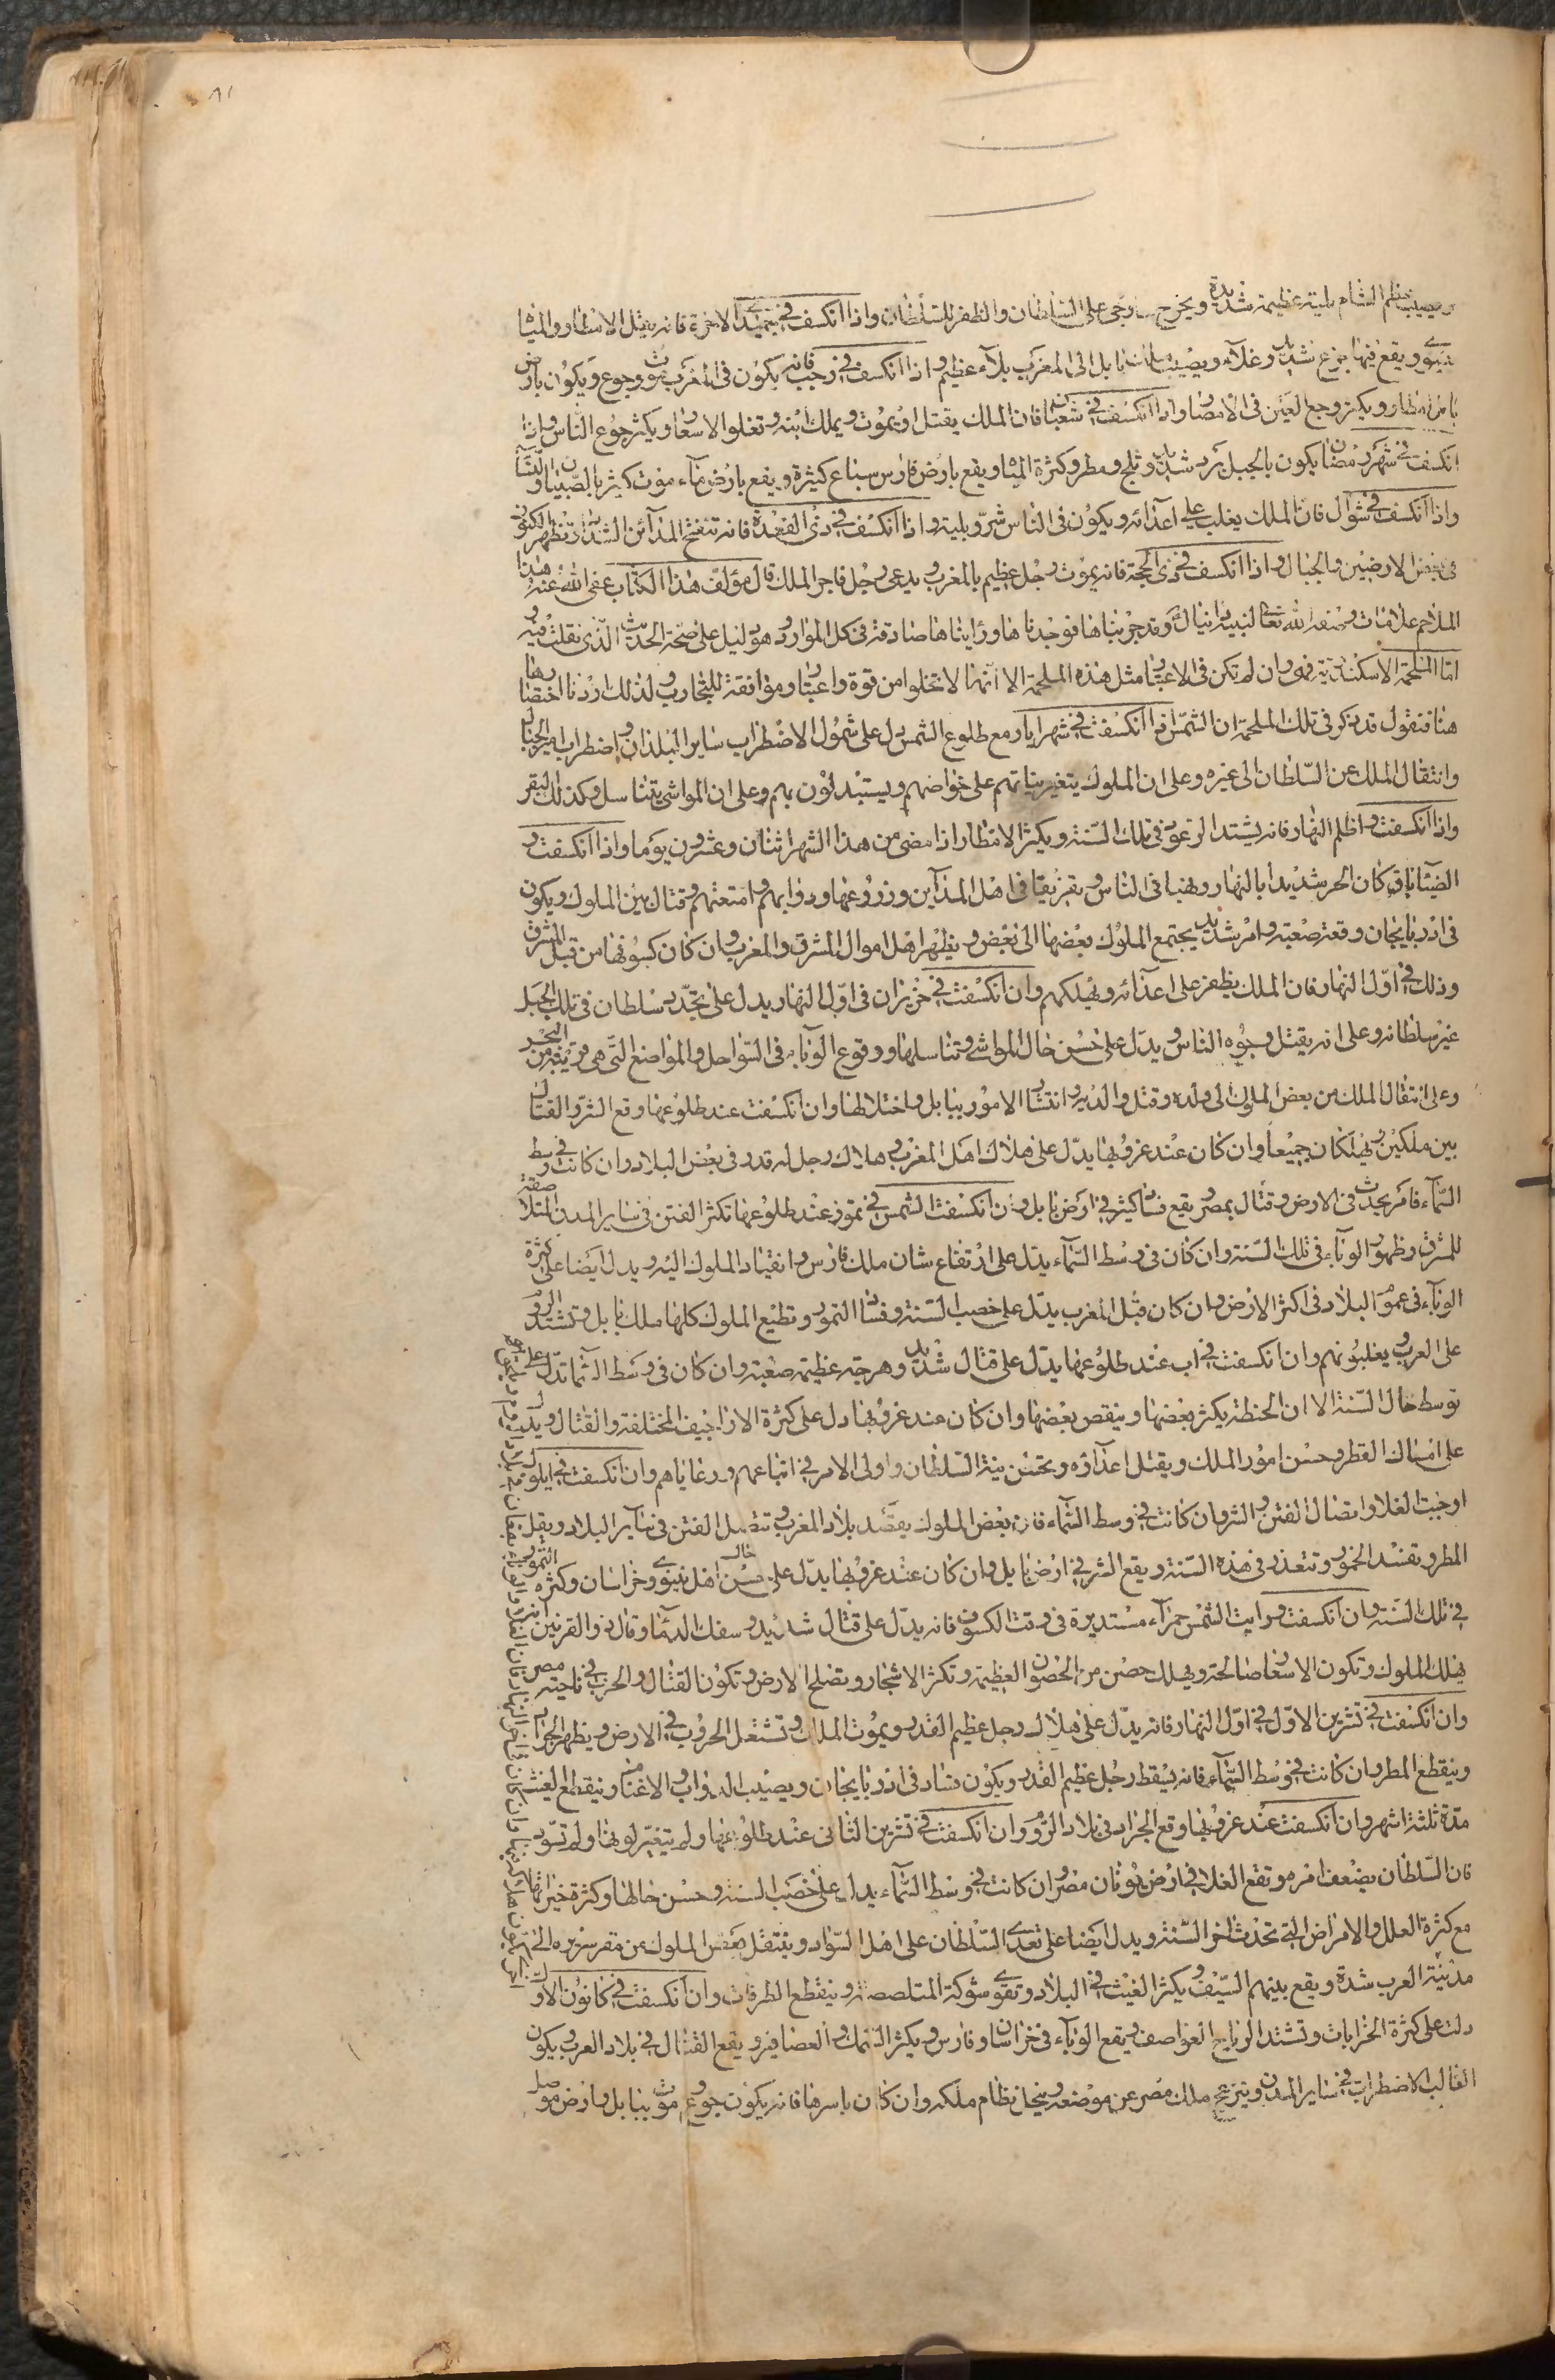 ٨١
ويصيب عظم الشام بلية عظيمة شديدة ويخرج خارجى على السلطان والظفر للسلطان واذا انكسف فى جميدى الاخرة فانه يقتل الامطار والمياه
نينوى ويقع فيها جزع شديد وغلاء ويصيب بابل الى المغرب بلاء عظيم واذا انكسف فى رجب فانه يكون فى المغرب موت وجوع ويكون بارض
بابل امطار ويكثر وجع العين فى الامصار واذا انكسف فى شعبان فان الملك يقتل او يموت ويملك ابنه وتغلوا الاسعار ويكثر جوع الناس واذا
انكسف فى شهر رمضان يكون بالجبل برد شديد وثلج ومطر وكثرة المياه ويقع بارض فارس سباع كثيرة ويقع بارض ماء موت كثير بالصبيان والنساء
واذا انكسف فى شوال فان الملك يغلب على اعدائه ويكون فى الناس شر وبلية واذا انكسف فى ذى القعدة فانه تنفتح المدائن الشداد وتظهر الكنوز
فى بعض الارضين والجبال واذا انكسف فى ذى الحجة فانه يموت رجل عظيم بالمغرب ويدعى رجل فاجر الملك قال مؤلف هذا الكتاب عفى الله عنه هذا
الملاحم علامات وضعه الله تعالى لنبيه دانيال وقد جربناها فوجدناها ورايناها صادقة فى كل الموارد وهو دليل على صحة الحديث الذى نقلت فيه
اما الملحمة الاسكندرية فهى وان لم تكن فى الاعتبار مثل هذه الملحمة الا انها لا تخلوا من قوة واعتبار وموافقة للتجارب ولذلك اردنا اختصارها
هنا فنقول قد يذكر فى تلك الملحمة ان الشمس اذا انكسفت فى شهر ايار مع طلوع الشمس دل على شمول الاضطراب ساير البلدان واضطراب اهل الجبال
وانتقال الملك عن السلطان الى غيره وعلى ان الملوك يتغير نياتهم على خواصهم ويستبدلون بهم وعلى ان المواشى يتناسل وكذلك البقر
واذا انكسفت واظلم النهار فانه يشتد الرعود فى تلك السنة ويكثر الامطار اذا مضى من هذا الشهر اثنان وعشرون يوما واذا انكسفت و
الضياء باق كان الحر شديدا بالنهار ونهبا فى الناس وتفزيقا فى اهل المداين وزروعها ودوابهم وامتعتهم وقتال بين الملوك ويكون
فى اذربايجان وقعة صعبة وامر شديد يجتمع الملوك بعضها الى بعض ويظهر اهل اموال المشرق والمغرب وان كان كسوفها من قبل المشرق
وذلك فى اول النهار فان الملك يظفر على اعدائه ويهلكهم وان انكسفت فى حزيران فى اول النهار يدل على تجدد سلطان فى تلك الجبل
غير سلطانه وعلى انه يقتل وجوه الناس ويدل على حسن حال المواشى وتناسلها ووقوع الوباء فى السواحل والمواضع التى هى قريبة من البحر
وعلى انتقال الملك من بعض الملوك الى ولده وقتل والديه وانتشار الامور ببابل واختلاطها وان انكسفت عند طلوعها وقع الشر والقتال
بين ملكين ويهلكان جميعا وان كان عند غروبها يدل على هلاك اهل المغرب وهلاك رجل له قدر فى بعض البلاد وان كانت فى وسط
السماء فامر يحدث فى الارض وقتال بمصر ويقع فساد كثير فى ارض بابل وان انكسفت الشمس فى تموز عند طلوعها تكثر الفتن فى ساير المدن المتلاصقة
للمشرق وظهور الوباء فى تلك السنة وان كان فى وسط السماء يدل على ارتفاع شان ملك فارس وانقياد الملوك اليه ويدل ايضا على كثرة
الوباء فى عموم البلاد فى اكثر الارض وان كان قبل المغرب يدل على خصب السنة وفساد التمور وتطيع الملوك كلها ملك بابل وتشتد الروم
على العرب ويغلبونهم وان انكسفت فى اب عند طلوعها يدل على قتال شديد وهرجة عظيمة صعبة وان كان فى وسط السماء تدل على
توسط حال السنة الا ان الحنطة يكثر بعضها وينقص بعضها وان كان عند غروبها دل على كثرة الاراجيف المختلفة والقتال ويدل
على امساك القطر وحسن امور الملك ويقتل اعداؤه وتحسن نية السلطان واولى الامر فى اتباعهم ورعاياهم وان انكسفت فى ايلول
اوجبت الغلا واتصال الفتن والشر وان كانت فى وسط السماء فان بعض الملوك يقصد بلاد المغرب وتتصل الفتن فى ساير البلاد ويقل
المطر وتفسد الخمور وتتعذر فى هذه السنة ويقع الشر فى ارض بابل وان كان عند غروبها يدل على حسن حال اهل نينوى وخراسان وكثرة التمور
فى تلك السنة وان انكسفت ورايت الشمس حمراء مستديرة فى وقت الكسوف فانه يدل على قتال شديد وسفك الدماء وقال ذو القرنين انه
يهلك الملوك وتكون الاسعار صالحة ويهلك حصن من الحصون العظيمة وتكثر الاشجار وتصلح الارض وتكون القتال والحرب فى ناحية مصر
وان انكسفت فى تشرين الاول فى اول النهار فانه يدل على هلاك رجل عظيم القدر ويموت الملك وتشتعل الحروب فى الارض ويظهر الجراد
وينقطع المطر وان كانت فى وسط السماء فانه يسقط رجل عظيم القدر ويكون فساد فى اذربايجان ويصيب الدواب والاغنام وينقطع الغيث
مدة ثلثة اشهر وان انكسفت عند غروبها وقع الجراد فى بلاد الروم وان انكسفت فى تشرين الثانى عند طلوعها ولم يتغير لونها ولم تسود
فان السلطان يضعف امره وتقع الغلا فى ارض يونان مصر وان كانت فى وسط السماء يدل على خصب السنة وحسن حالها وكثرة خيراتها
مع كثرة العلل والامراض التى تحدث اخر السنة ويدل ايضا على تعدى السلطان على اهل السواد وينتقل بعض الملوك من مقر سريره الى
مدينة العرب شدة ويقع بينهم السيف ويكثر الغيث فى البلاد وتقوى شوكة المتلصصة وينقطع الطرقات وان انكسفت فى كانون الاول
دلت على كثرة الخرابات وتشتد الرياح العواصف ويقع الوباء فى خراسان وفارس ويكثر السمك والعصافير ويقع القتال فى بلاد العرب ويكون
الغالب الاضطراب فى ساير المدن وينزعج ملك مصر عن موضعه وينحل نظام ملكه وان كان باسرها فانه يكون جوع وموت ببابل وارض موصل